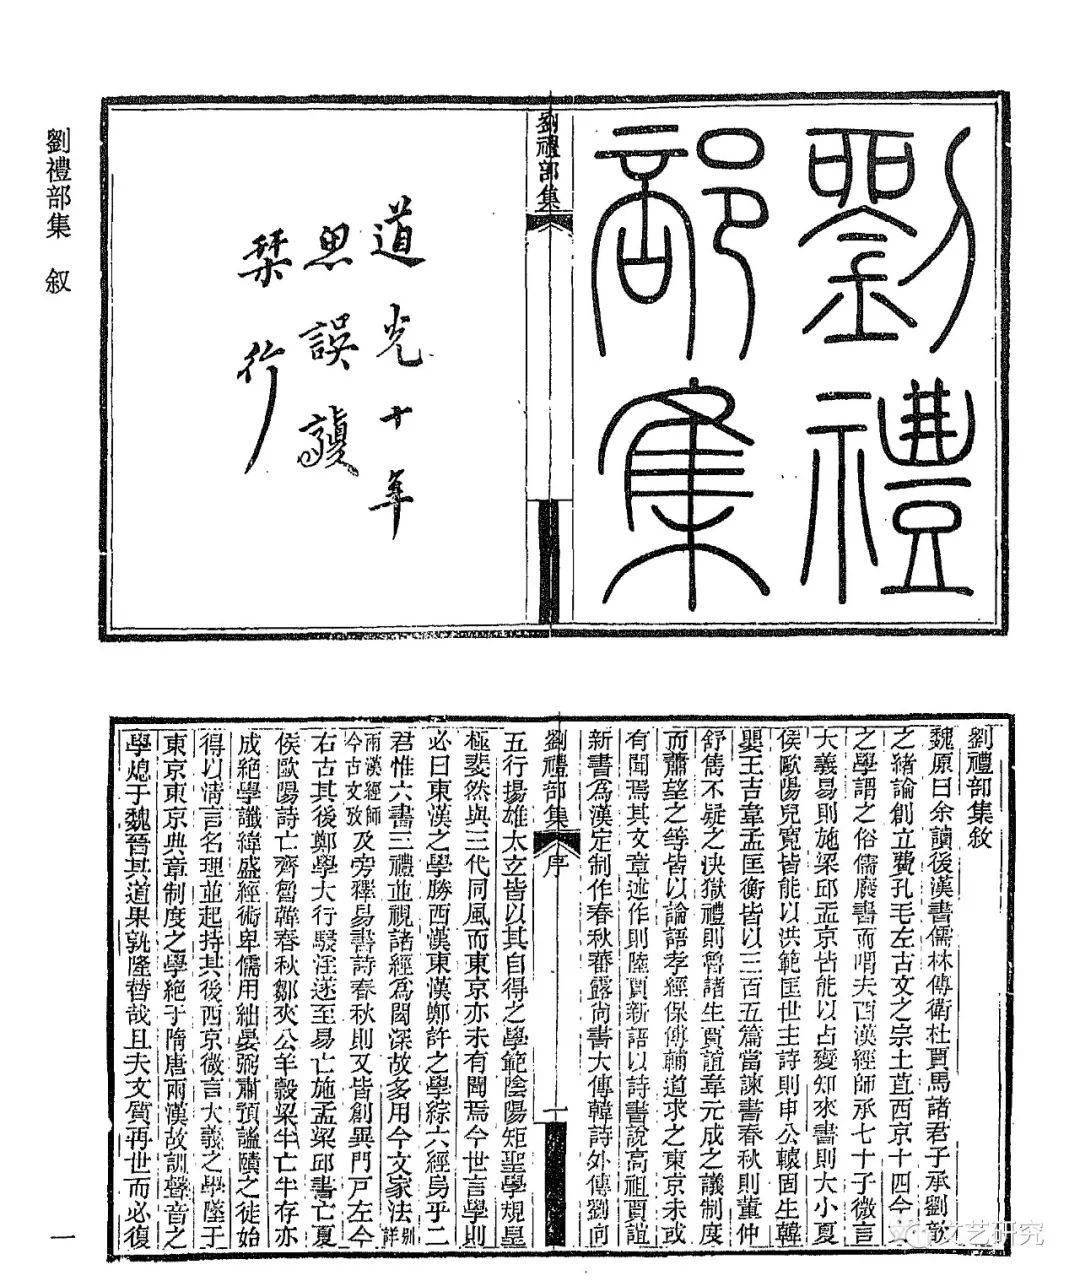 劉禮
部集
劉禮部集
道光十年
思誤
栞行
劉禮部集 叙
劉禮部集敘
魏原曰余讀後漢書儒林傳衛杜賈馬諸君子承劉歆
之緒論創立費孔毛左古文之宗土苴西京十四今
之學謂之俗儒廢書而喟夫西漢經師承七十子微言
大義易則施梁邱孟京皆能以占變知來書則大小夏
侯歐陽兒寬皆能以洪範匡世主詩則申公轅固生韓
嬰王吉韋孟匡衡皆以三百五篇當諫書春秋則董仲
舒雋不疑之決獄禮則魯諸生賈誼韋元成之議制度
而蕭望之等皆以論語孝經保傅輔道求之東京未或
有聞焉其文章述作則陸賈新語以詩書說高祖賈誼
新書為漢定制作春秋蕃露尚書大傳韓詩外傳劉向
劉禮部集 序 一
五行揚雄太玄皆以其自得之學範陰陽矩聖學規皇
極斐然與三代同風而東京亦未有聞焉今世言學則
必曰東漢之學勝西漢東漢鄭許之學綜六經烏乎二
君惟六書三禮並視諸經為閎深故多用今文家法別詳
兩漢經師今古文攷及旁釋易書詩春秋則又皆創異門戶左今
右古其後鄭學大行駸淫遂至易亡施孟梁邱書亡夏
侯歐陽詩亡齊魯韓春秋鄒夾公羊穀梁半亡半存亦
成絕學讖緯盛經術卑儒用絀晏弼肅預謐賾之徒始
得以清言名理並起持其後西京微言大義之學墜于
東京東京典章制度之學絕于隋唐兩漢故訓聲音之
學熄于魏晉其道果孰隆替哉且夫文質再世而必復
一
文艺研究